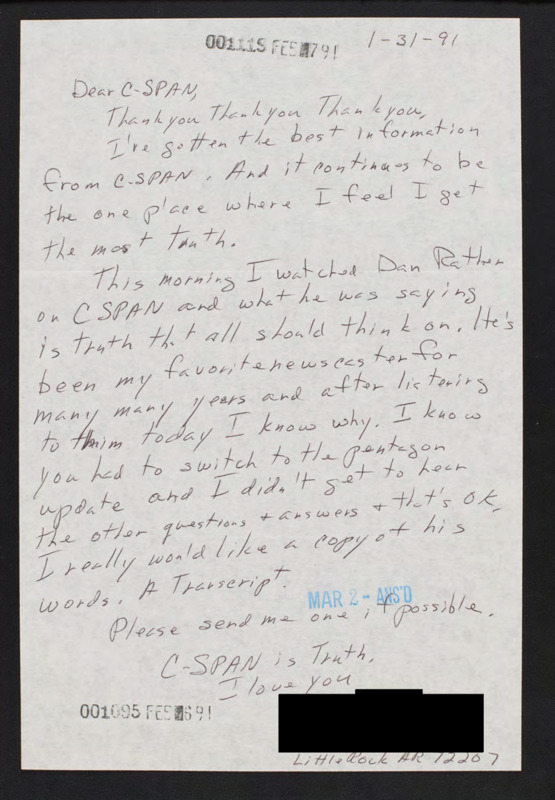 001115 FEB 791
1-31-91
Dear C-SPAN,
Thank you Thank you Thank you,
I've gotten the best information
from C-SPAN. And it continues to be
the one place where I feel I get
the most truth.
This morning I watched Dan Rather
on CSPAN and what he was saying
is truth that all should think on. He's
been my favorite newscaster for
many many years and after listening
to him today I know why. I know
you had to switch to the pentagon
update and I didn't get to hear
the other questions + answers + that's OK,
I really would like a copy of his
words. A Transcript.
MAR 2 - ANS'D
Please send me one if possible.
C-SPAN is Truth.
I love you
001095 FEB 691
Little Rock AR 72207